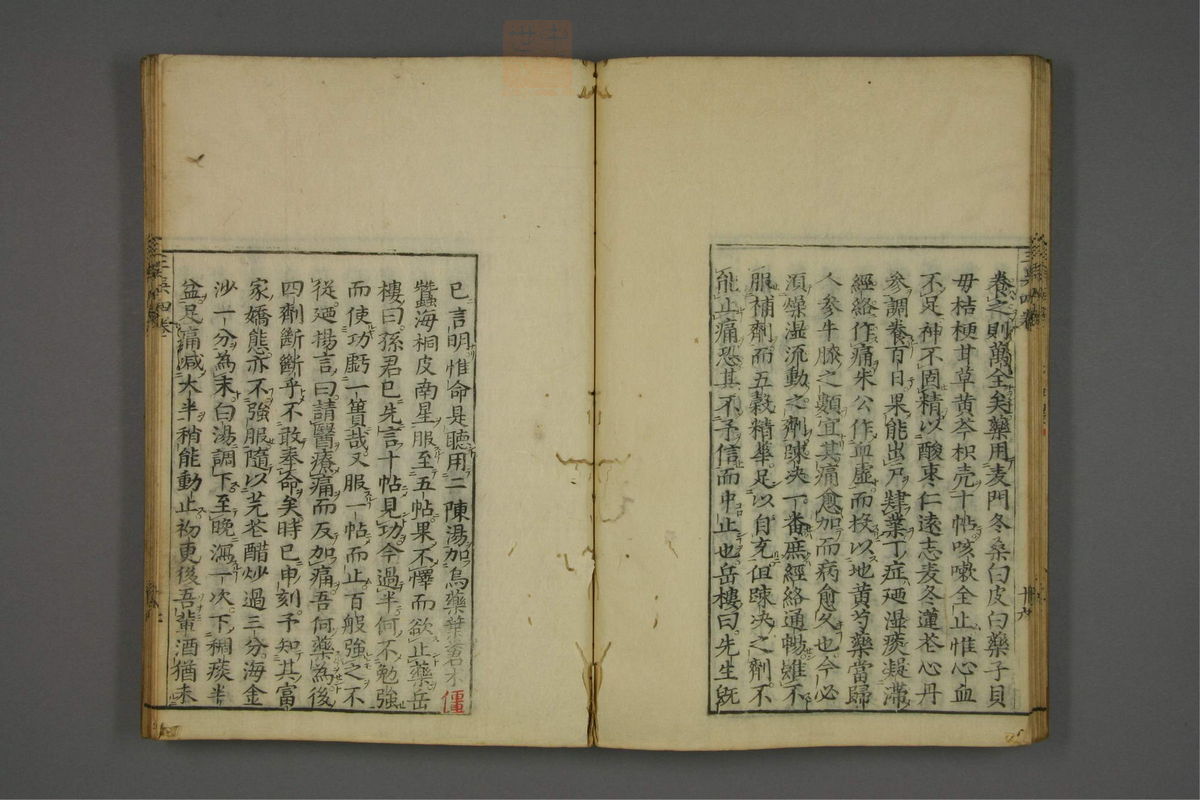 養之則萬全矣藥用麦門冬桑白皮白藥子貝
毋桔梗甘草黄芩枳壳十帖咳嗽全止惟心血
不足神不固精以酸枣仁逺志麦冬蓮茋心丹
参調養百日果能出乃肄業丁症廼湿痰凝滞
經絡作痛朱公作血虚而投以地黄芍藥當歸
人參牛膝之類宜其痛愈加而病愈久也今必
須燥湿流動之劑踈决一番庶經絡通暢雖不
服補劑而五穀精華足以自充但踈决之劑不
能止痛恐其不予信而中止也岳樓曰先生既
已言明惟命是聽用二陳湯加烏藥葉
蠶海桐皮南星服至五帖果不懌而欲止藥岳
樓曰孫君已先言十帖見功今過半何不勉強
而使功虧一簣哉又服一帖而止百般強之不
從廼揚言曰請醫療痛而反加痛吾何藥為後
四劑斷斷乎不敢奉命矣時已申刻予知其富
家嬌態亦不強服隨以芫花醋炒過三分海金
沙一分為末白湯調下至晚瀉一次下稠痰半
盆足痛减大半稍能動止初更後吾輩酒猶未
僵